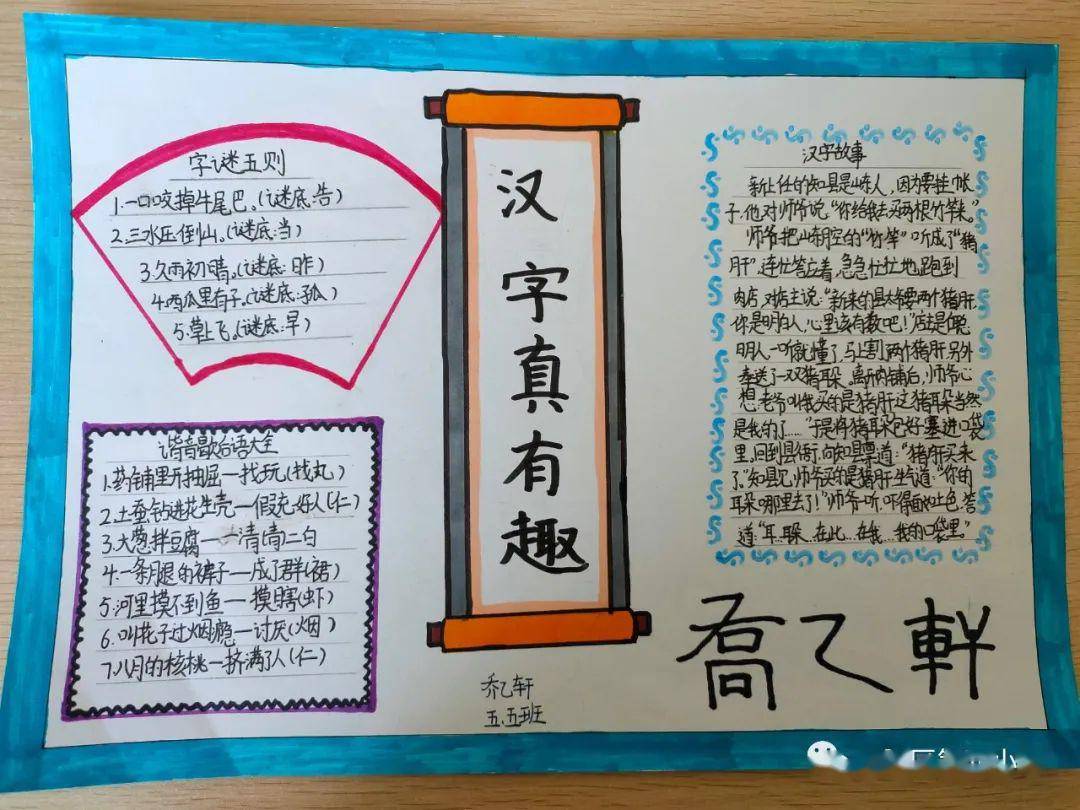 字谜五则
1.一口咬掉牛尾巴。(谜底:告)
2.三水压倒山。(谜底:当)
3.久雨初晴。(谜底:昨)
4.西瓜里有子。(谜底:孤)
5.草上飞。(谜底:早)
谐音歇后语大全
1.药铺里开抽屉—找玩(找丸)
2.土蚕钻进花生壳—假充好人(仁)
3.大葱拌豆腐—一清(青)二白
4.一条腿的裤子—成了群(裙)
5.河里摸不到鱼—摸瞎(虾)
6.叫花子过烟瘾—讨厌(烟)
7.八月的核桃—挤满了人(仁)
汉字真有趣
乔乙轩
五.五班
汉字故事
新上任的知县是山东人,因为要挂帐
子,他对师爷说:“你给我去买两根竹竿来。”
师爷把山东腔的“竹竿”听成了“猪
肝”,连忙答应着,急急忙忙地跑到
肉店,对店主说:“新来的县太爷要两个猪肝,
你是明白人,心里该有数吧!”店主是个聪
明人,一听就懂了,马上割了两个猪肝,另外
奉送了一双猪耳朵。离开肉铺后,师爷心
想:老爷叫我买的是猪肝,这猪耳朵当然
是我的了……”于是将猪耳朵包好,塞进口袋
里。回到县衙,向知县禀道:“猪肝买来
了”知县见师爷买的是猪肝,生气道:“你的
耳朵哪里去了!”师爷一听,吓得面如土色,答
道:“耳…朵…在此…在我…我的口袋里”
喬乙軒